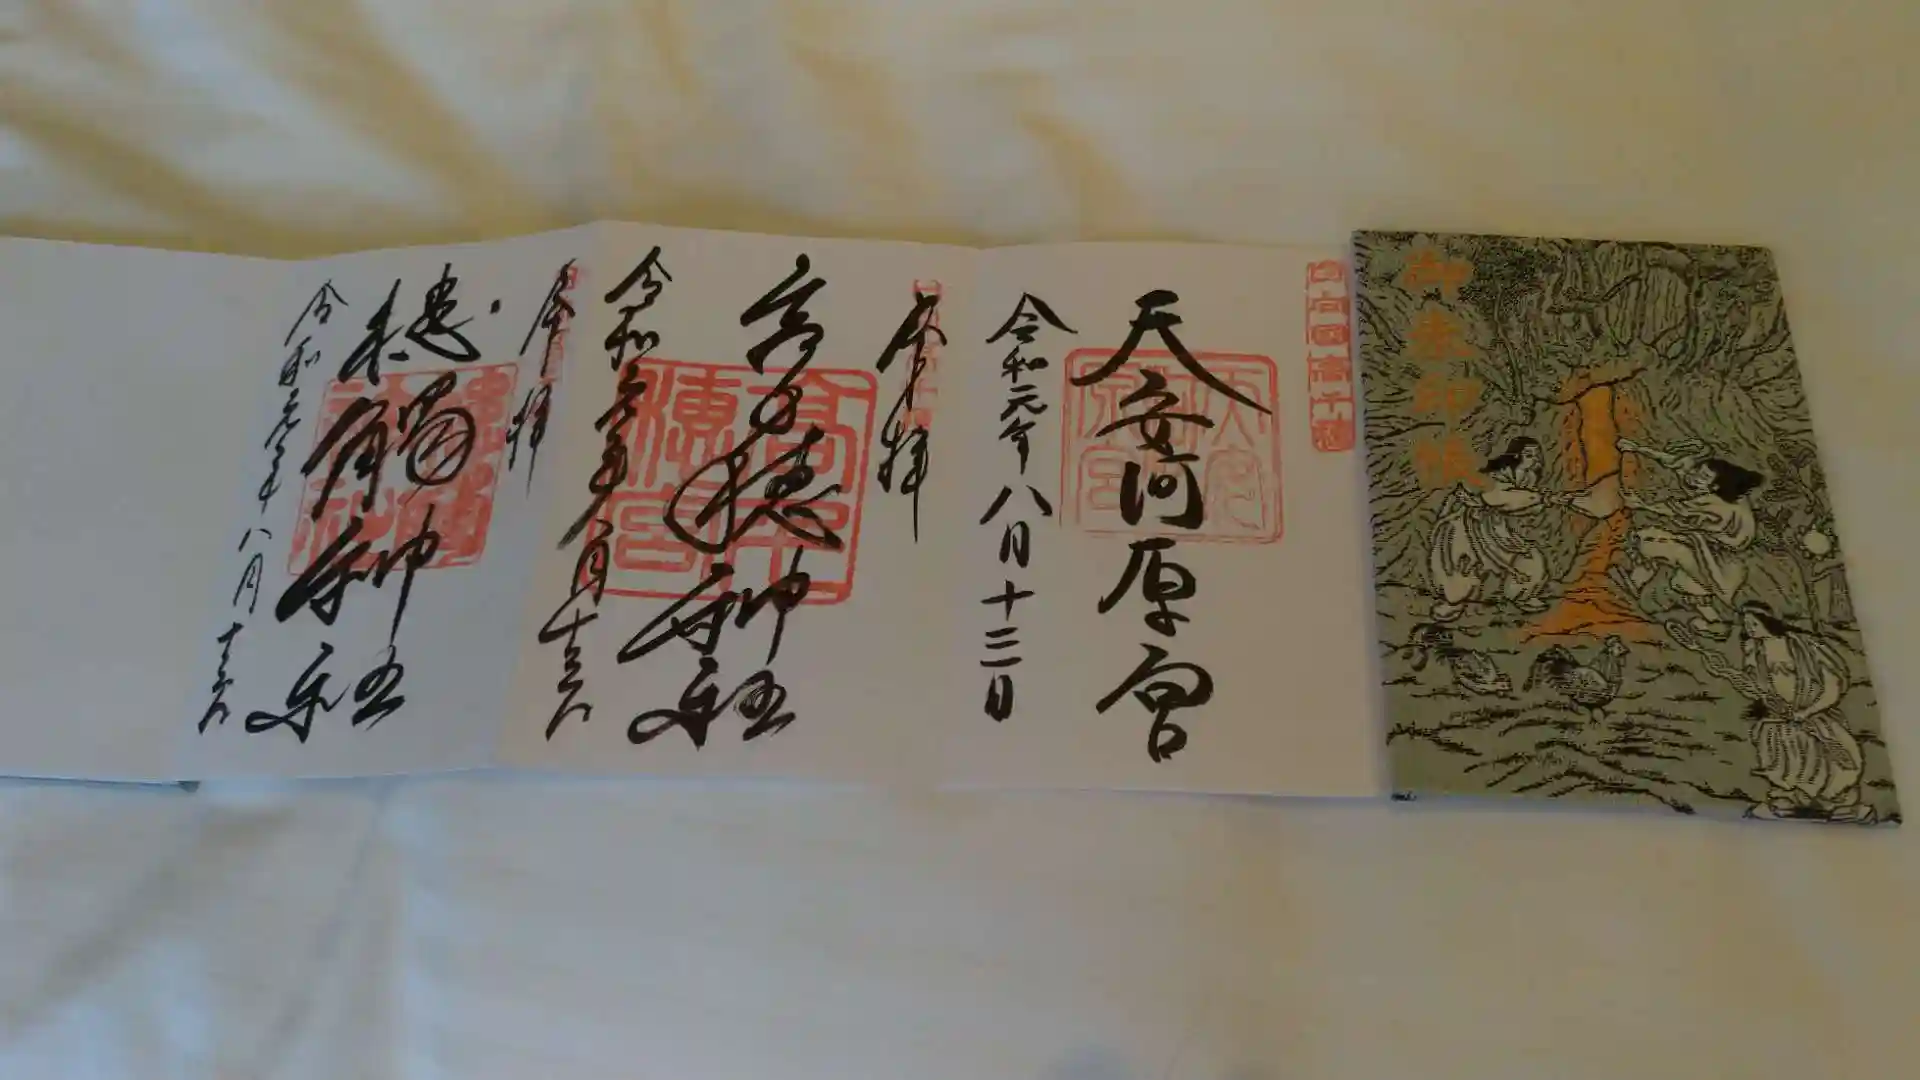 御朱印帳
日向國高千穂
天安河原宮
令和元年八月十三日
奉拝
高千穂神社
高千穂宮
令和元年八月十三日
奉拝
槵觸神社
令和元年八月十三日